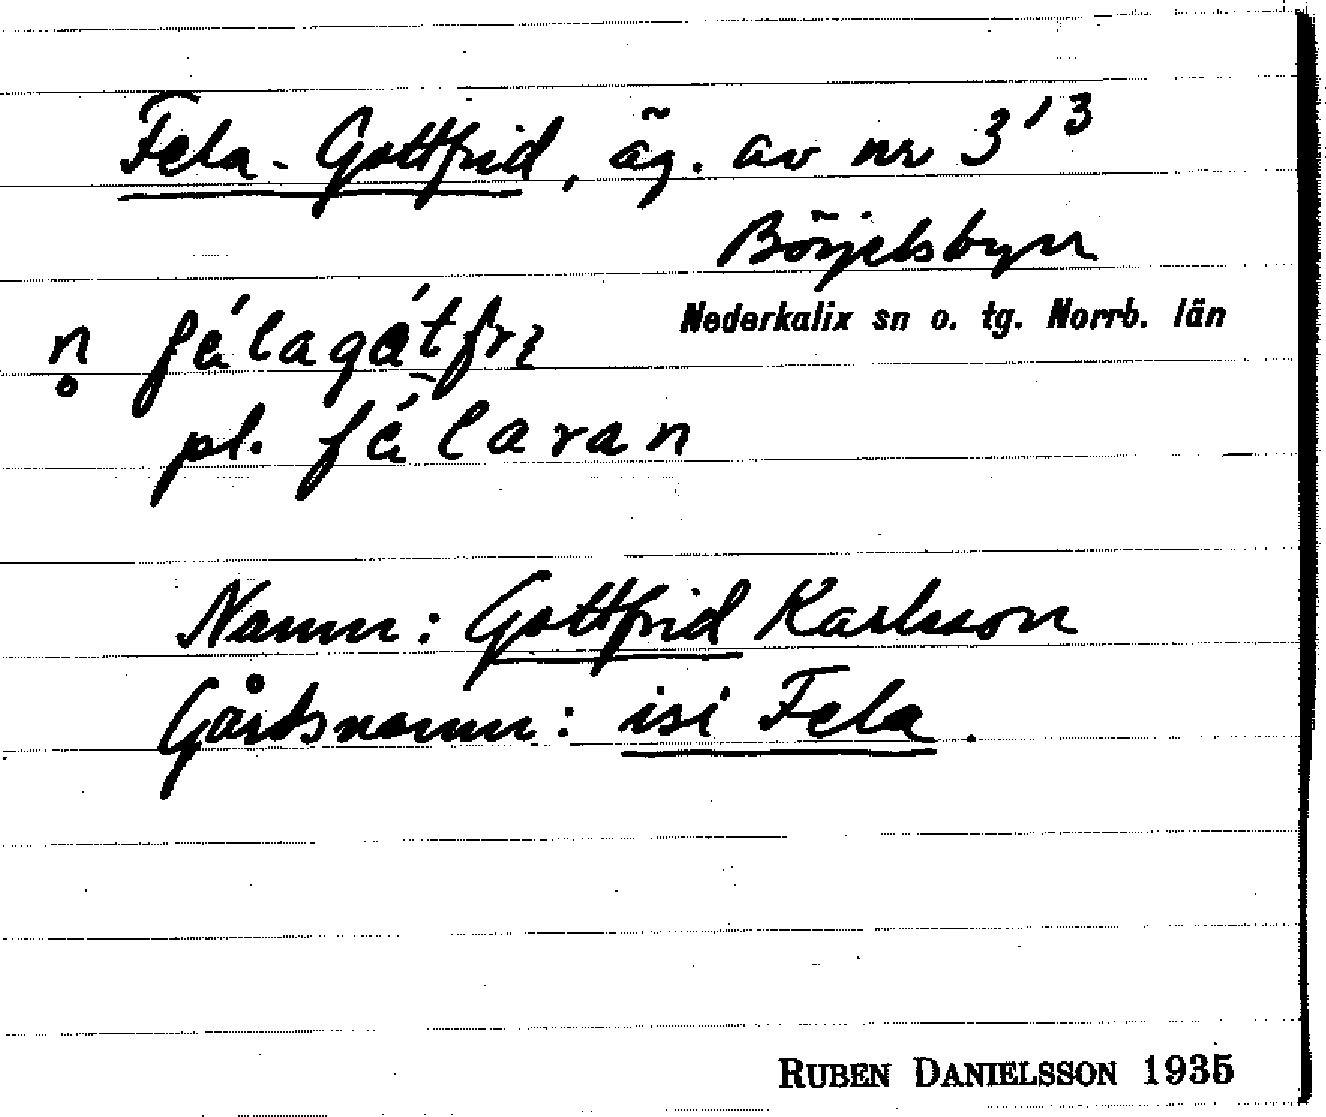 Fela-Gottfrid, äg. av nr 3¹³
Börjelsbyn
Nederkalix sn o. tg. Norrb. län
pl.
Namn: Gottfrid Karlsson
Gårdsnamn: isi Fela.
RUBEN DANIELSSON 1935